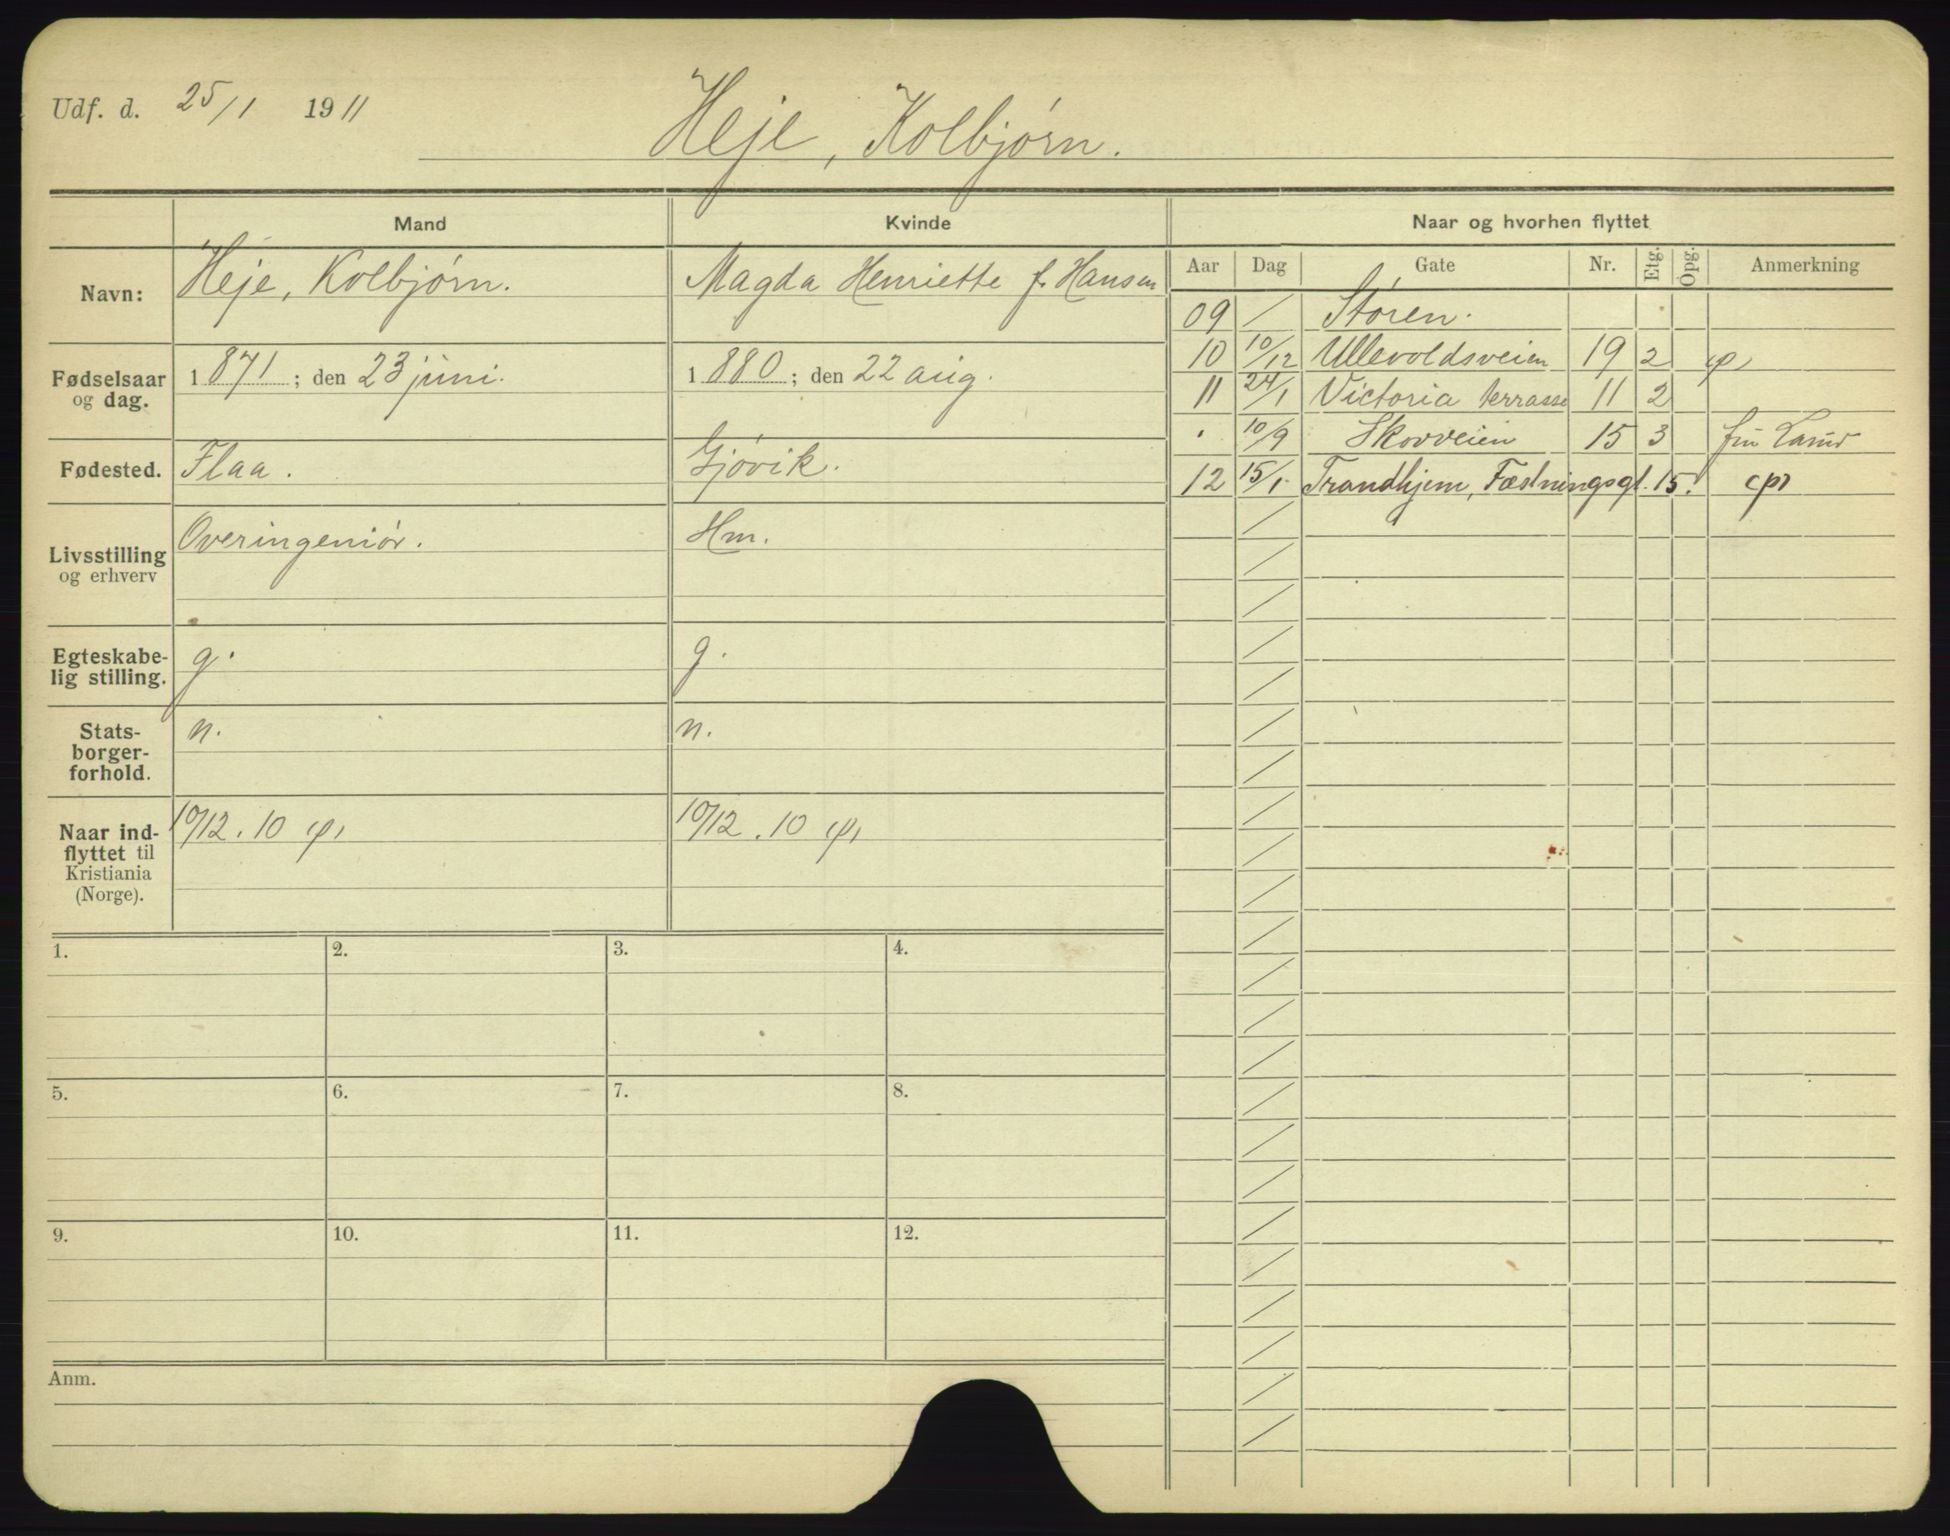 Udf. d. 25/1 1911
Heje, Kolbjørn.
Mand Kvinde Naar og hvorhen flyttet
Navn: Heje, Kolbjørn. Magda Henriette f. Hansen
Aar Dag Gate Nr. Etg. Opg. Anmerkning
09 / Støren.
10 10/12 Ullevoldsveien 19 2
11 24/1 Victoria terrasse 11 2
" 10/9 Skovveien 15 3 fru
12 15/1 Trondhjem, Fæstningsgt. 15.
Fødselsaar
og dag.
1871; den 23 juni. 1880; den 22 aug.
Fødested. Flaa. Gjøvik.
Livsstilling
og erhverv
Overingeniør. Hm.
Egteskabe-
lig stilling.
g. g.
Stats-
borger-
forhold.
n. n.
Naar ind-
flyttet til
Kristiania
(Norge).
10/12.10 10/12.10
1. 2. 3. 4.
5. 6. 7. 8.
9. 10. 11. 12.
Anm.